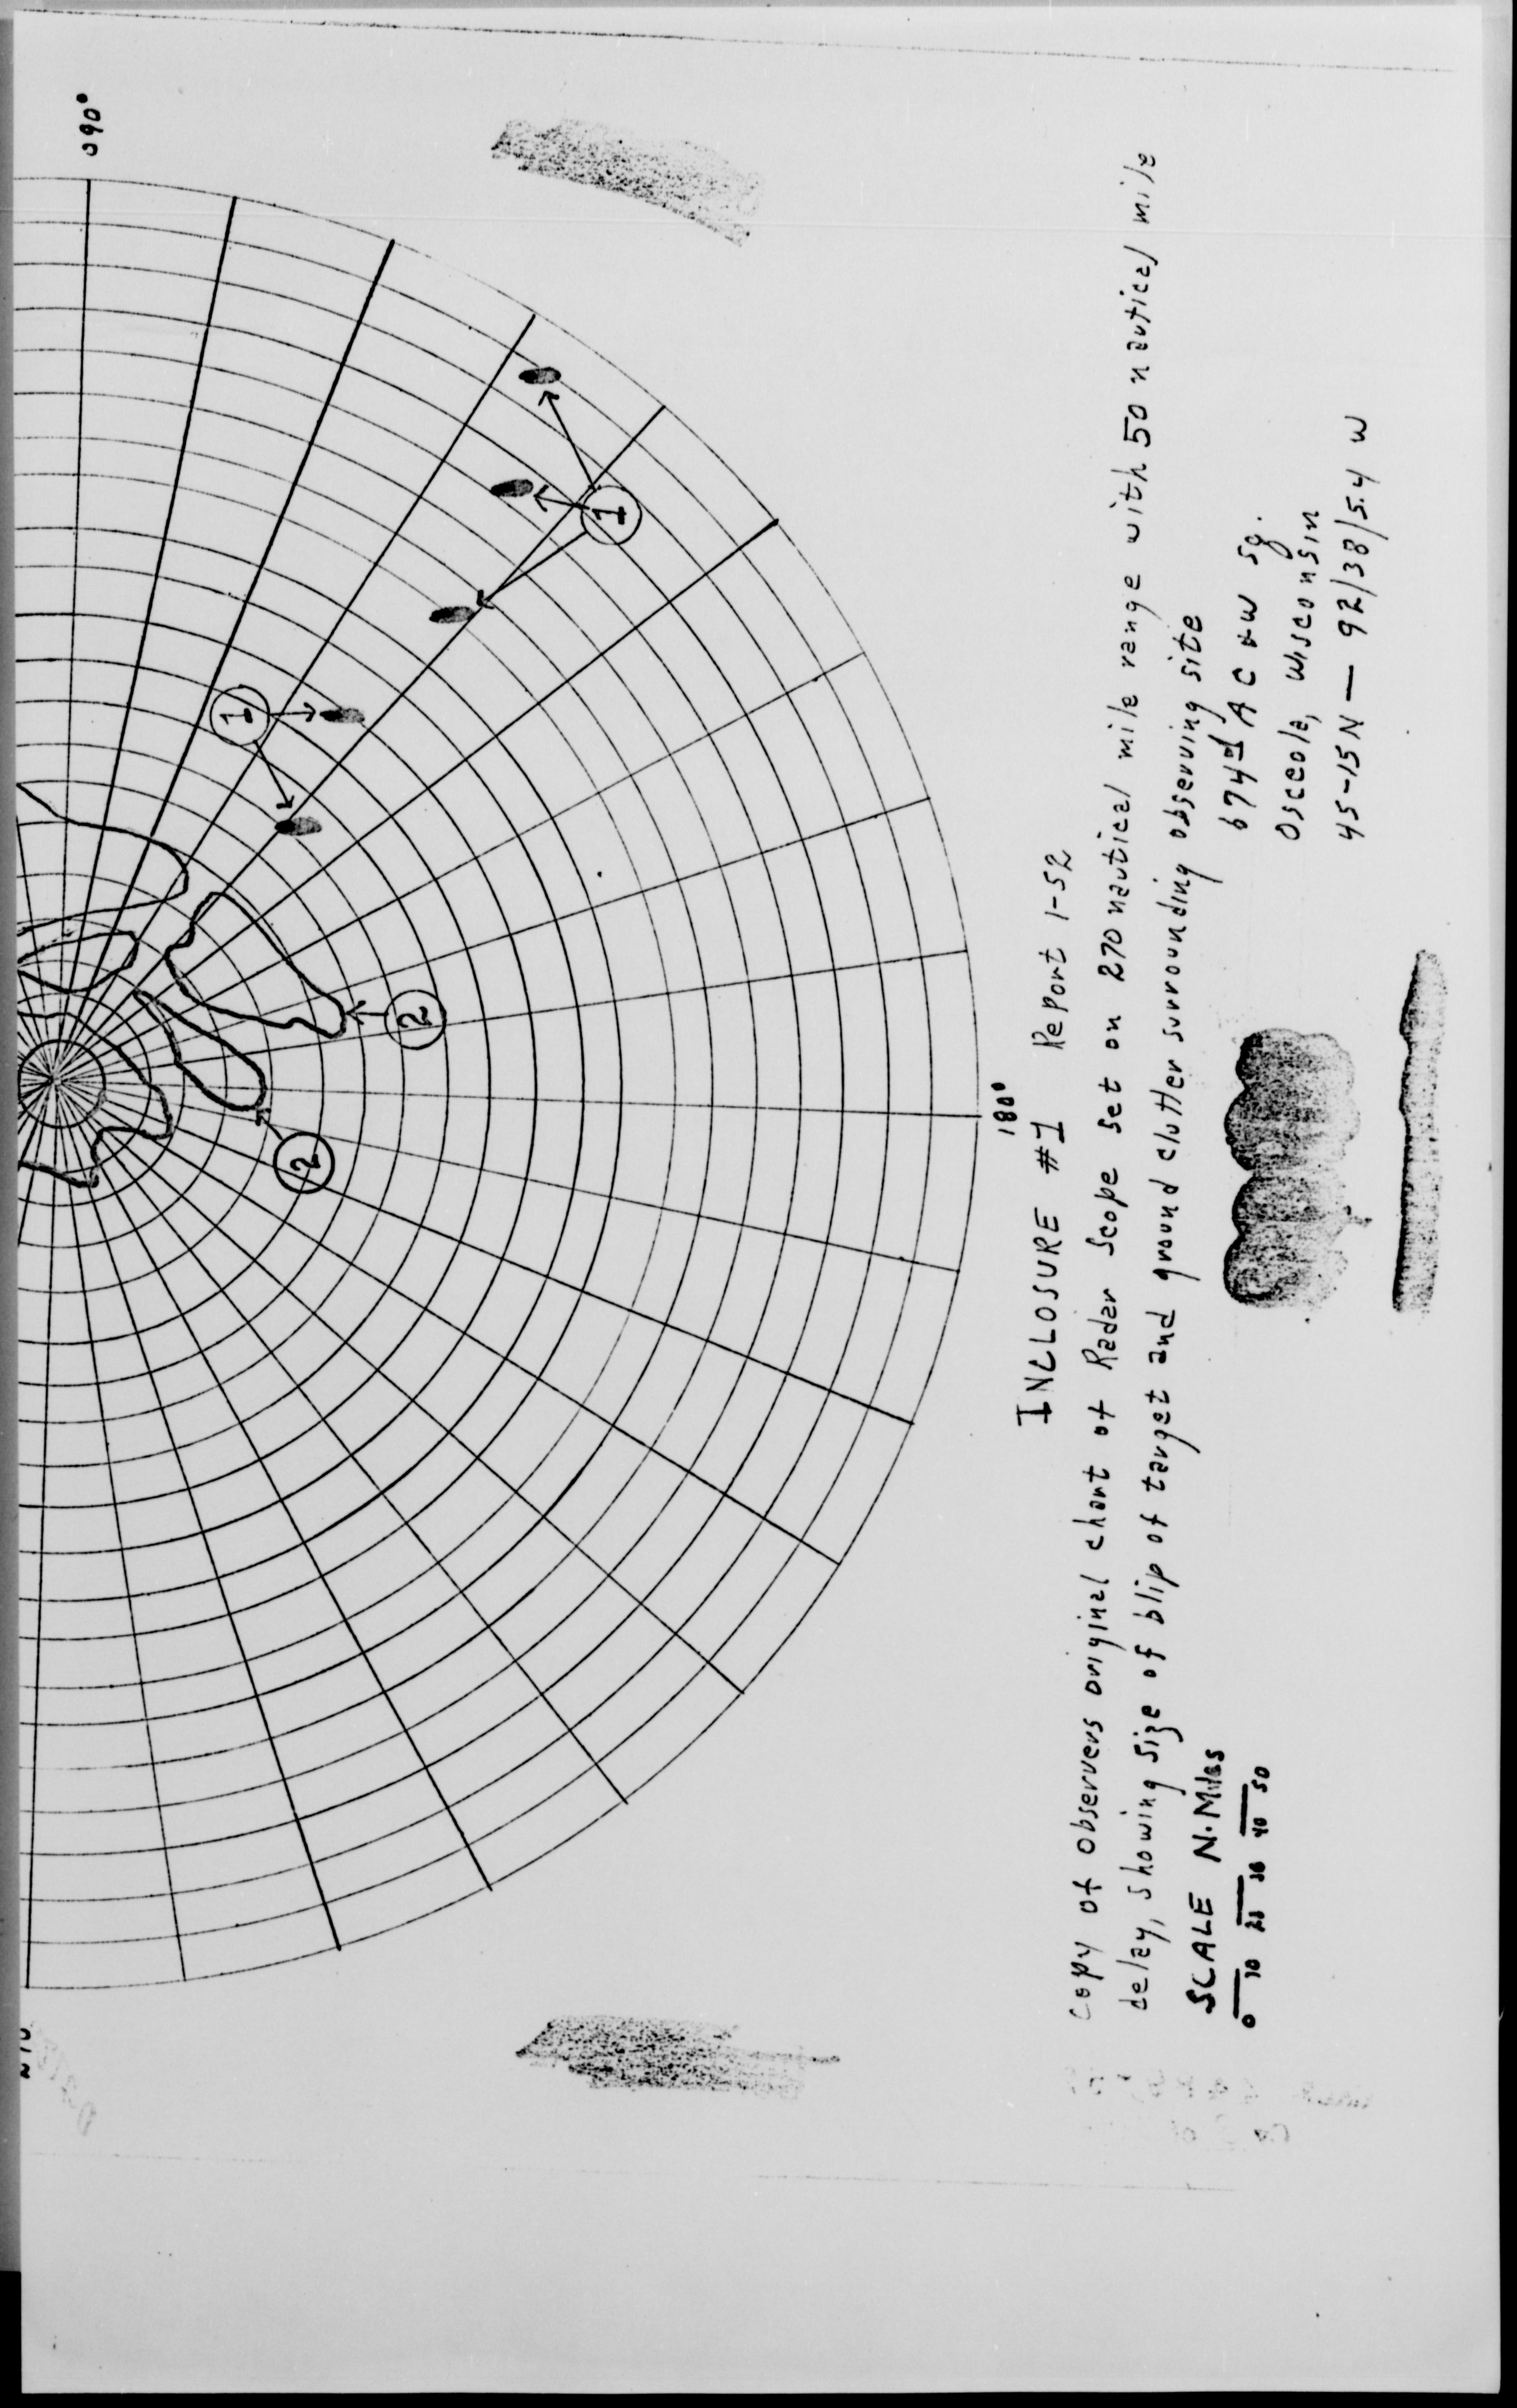 090°
1
1
2
2
180°
INCLOSURE #1 Report 1-52
Copy of observers original chart of Radar Scope set on 270 nautical mile range with 50 nautical mile
delay, showing size of blip of target and ground clutter surrounding observing site
SCALE N. Miles
0 10 20 30 40 50
674th AC &W Sq.
Osceola, Wisconsin
45-15N — 92/38/5.4 W